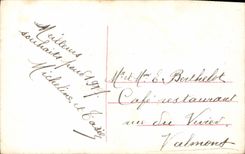 Meilleurs
souhaits pour 1917
Micheline et
Mr et Mme E. Berthelot
Café restaurant
rue du
Valmont